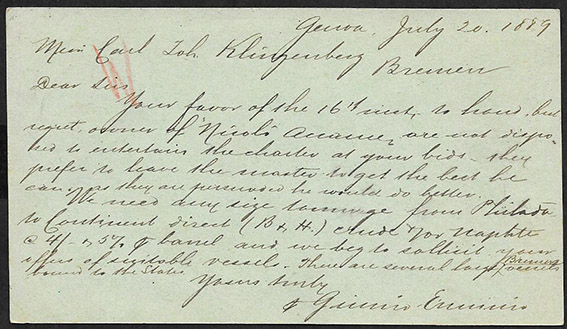 Genoa, July 20. 1889
Mess Carl Joh. Klingenberg
Bremen
Dear Sir
Your favor of the 16th inst, to hand, but
regret, owner of "Nicolò Accame", are not dispo-
sed to entertain the charter at your bids - they
prefer to leave the master to get the best he
can, as they are persuaded he would do better.
We need any size tonnage from Philada
to Continent direct (B & H.) crude &/or Naphta
@ 4/- & 5% barrel and we beg to solicit your
offers of suitable vessels. There are several large Bremen vessels
bound to the States
Yours truly